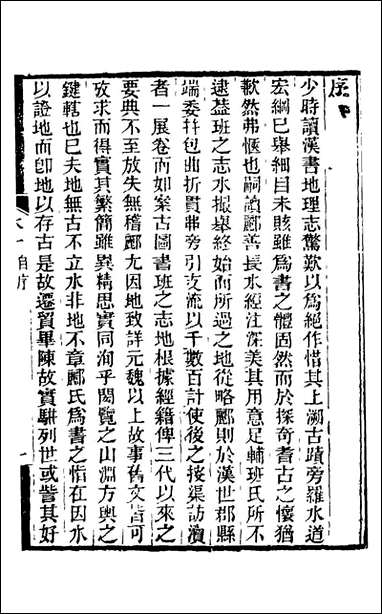 序
少時讀漢書地理志驚歎以爲絕作惜其上溯古蹟旁羅水道
宏綱已舉細目未賅雖爲書之體固然而於探奇耆古之懷猶
歉然弗愜也嗣讀酈善長水經注深美其用意足輔班氏所不
逮葢班之志水撮舉終始而所過之地從略酈則於漢世郡縣
端委并包曲折貫弗旁引支流以千數百計使後之接渠訪瀆
者一展卷而如案古圖書班之志地根據經籍俾三代以來之
要典不至放失無稽酈尤因地致詳元魏以上故事舊文皆可
攷求而得實其繁簡雖異精思實同洵乎閎覽之山淵方輿之
鍵轄也已夫地無古不立水非地不章酈氏爲書之恉在因水
以證地而卽地以存古是故遷貿畢陳故實駢列世或訾其好